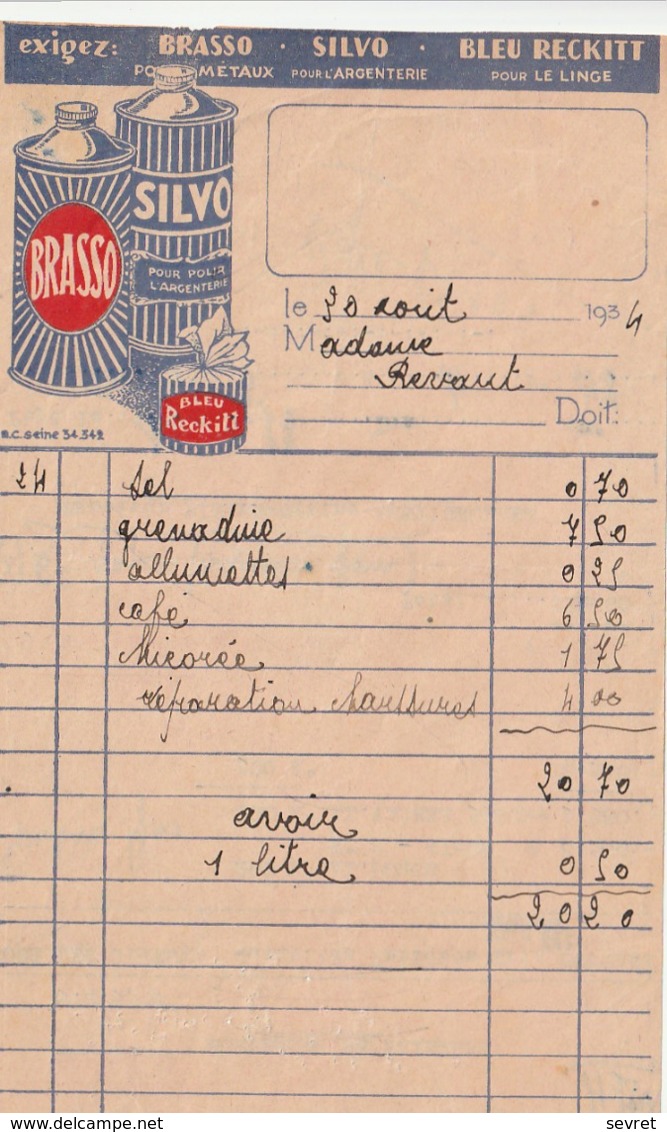 exigez: BRASSO · SILVO · BLEU RECKITT
POUR MÉTAUX POUR L'ARGENTERIE POUR LE LINGE
SILVO
BRASSO
POUR POLIR
L'ARGENTERIE
BLEU
Reckitt
le 30 août 1934
Madame
Revaut
Doit:
R.C. Seine 34.342
24 sel 0 70
grenadine 7 50
allumettes 0 25
café 6 50
chicorée 1 75
réparation chaussures 4 00
20 70
avoir
1 litre 0 50
20 20
delcampe.net
sevret